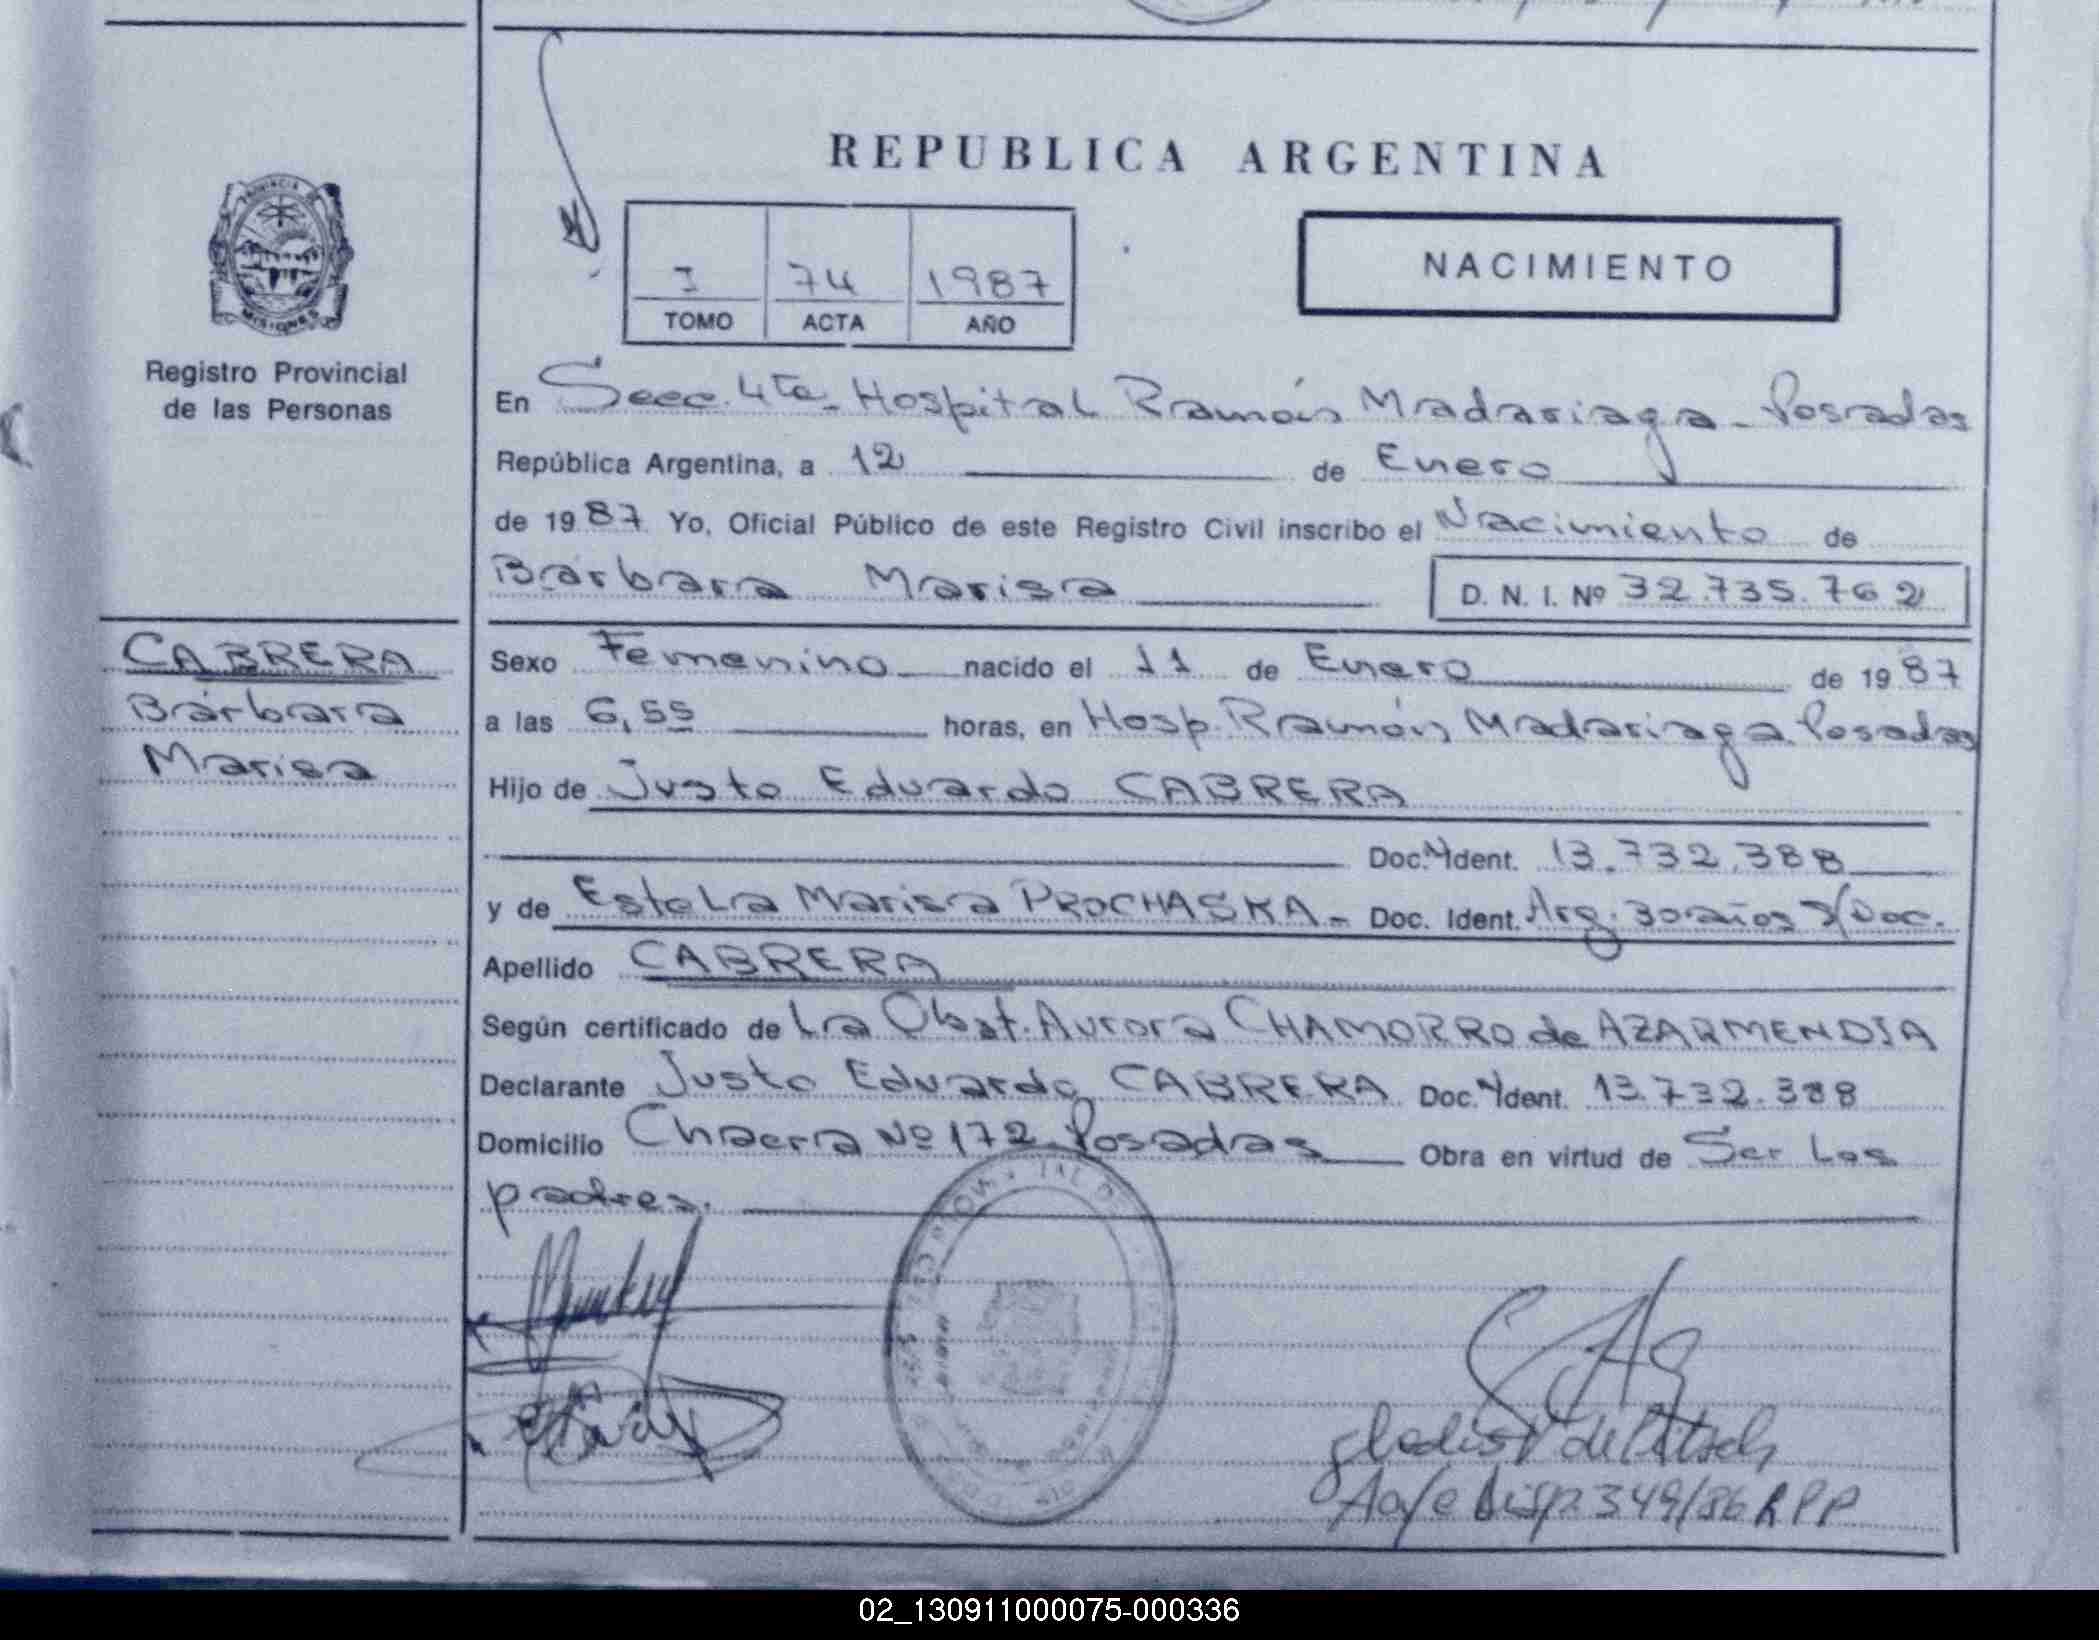 REPUBLICA ARGENTINA
NACIMIENTO
I 74 1987
TOMO ACTA AÑO
PROVINCIA DE
MISIONES
Registro Provincial
de las Personas
En Secc. 4ta. Hospital Ramón Madariaga - Posadas
República Argentina, a 12 de Enero
de 1987 Yo, Oficial Público de este Registro Civil inscribo el Nacimiento de
Bárbara Marisa D. N. I. Nº 32.735.762
CABRERA
Bárbara
Marisa
Sexo Femenino nacido el 11 de Enero de 1987
a las 6,55 horas, en Hosp. Ramón Madariaga. Posadas
Hijo de Justo Eduardo CABRERA
Doc. Ident. 13.732.388
y de Estela Marisa PROCHASKA - Doc. Ident. Arg. 30 años S/Doc.
Apellido CABRERA
Según certificado de La Obst. Aurora CHAMORRO de AZARMENDIA
Declarante Justo Eduardo CABRERA Doc. Ident. 13.732.388
Domicilio Chacra Nº 172 Posadas Obra en virtud de Ser Los
padres.
A/c Disp. 349/86 RPP
02_130911000075-000336